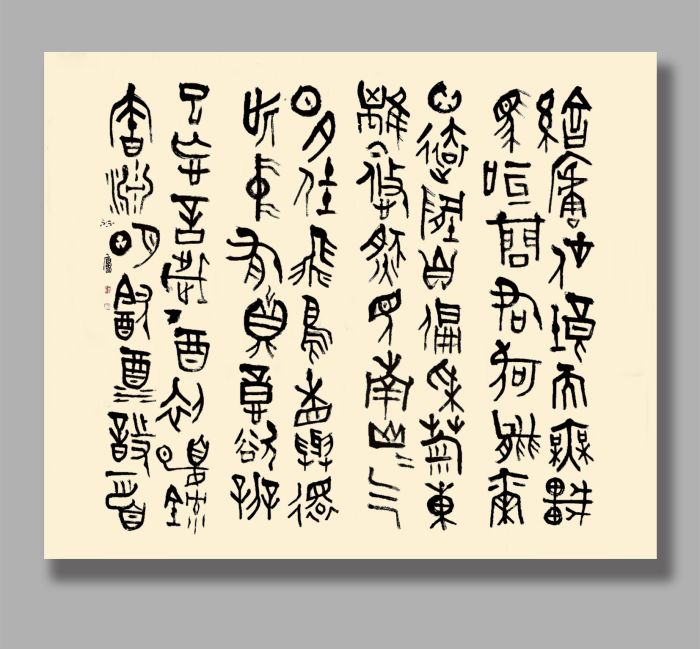 結廬在人境而無車
馬喧問君何能爾
心遠地自偏采菊東
籬下悠然見南山〻气
日夕佳飛鳥相與還
此中有真意欲辨
已忘言酉錄
淵明飲酒